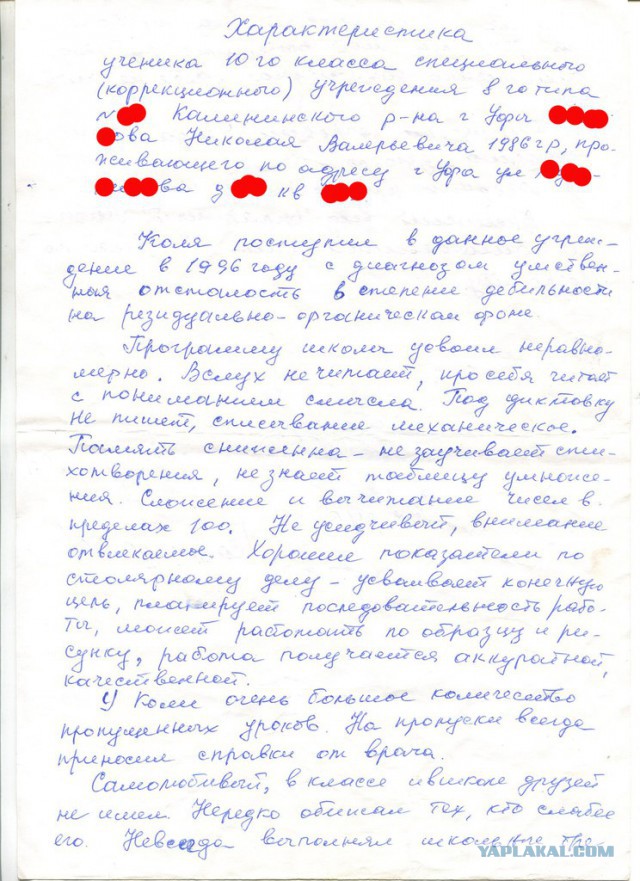 Характеристика
ученика 10го класса специального
(коррекционного) учреждения 8го типа
№ Калининского р-на г Уфы
ова Николая Валерьевича 1986гр, про-
живающего по адресу г Уфа ул
ва д кв
Коля поступил в данное учреж-
дение в 1996 году с диагнозом умствен-
ная отсталость в степени дебильности
на резидуально-органическом фоне.
Программу школы усвоил неравно-
мерно. Вслух не читает, про себя читает
с пониманием смысла. Под диктовку
не пишет, списывание механическое.
Память снижена - не заучивает сти-
хотворения, не знает таблицу умноже-
ния. Сложение и вычитание чисел в
пределах 100. Не усидчивый, внимание
отвлекаемое. Хорошие показатели по
столярному делу - усваивает конечную
цель, планирует последовательность рабо-
ты, может работать по образцу и ри-
сунку, работа получается аккуратной,
качественной.
У Коли очень большое количество
пропущенных уроков. На пропуски всегда
приносил справки от врача.
Самолюбивый, в классе и в школе друзей
не имел. Нередко обижал тех, кто слабее
его. Не всегда выполнял школьные тре-
YAPLAKAL.COM